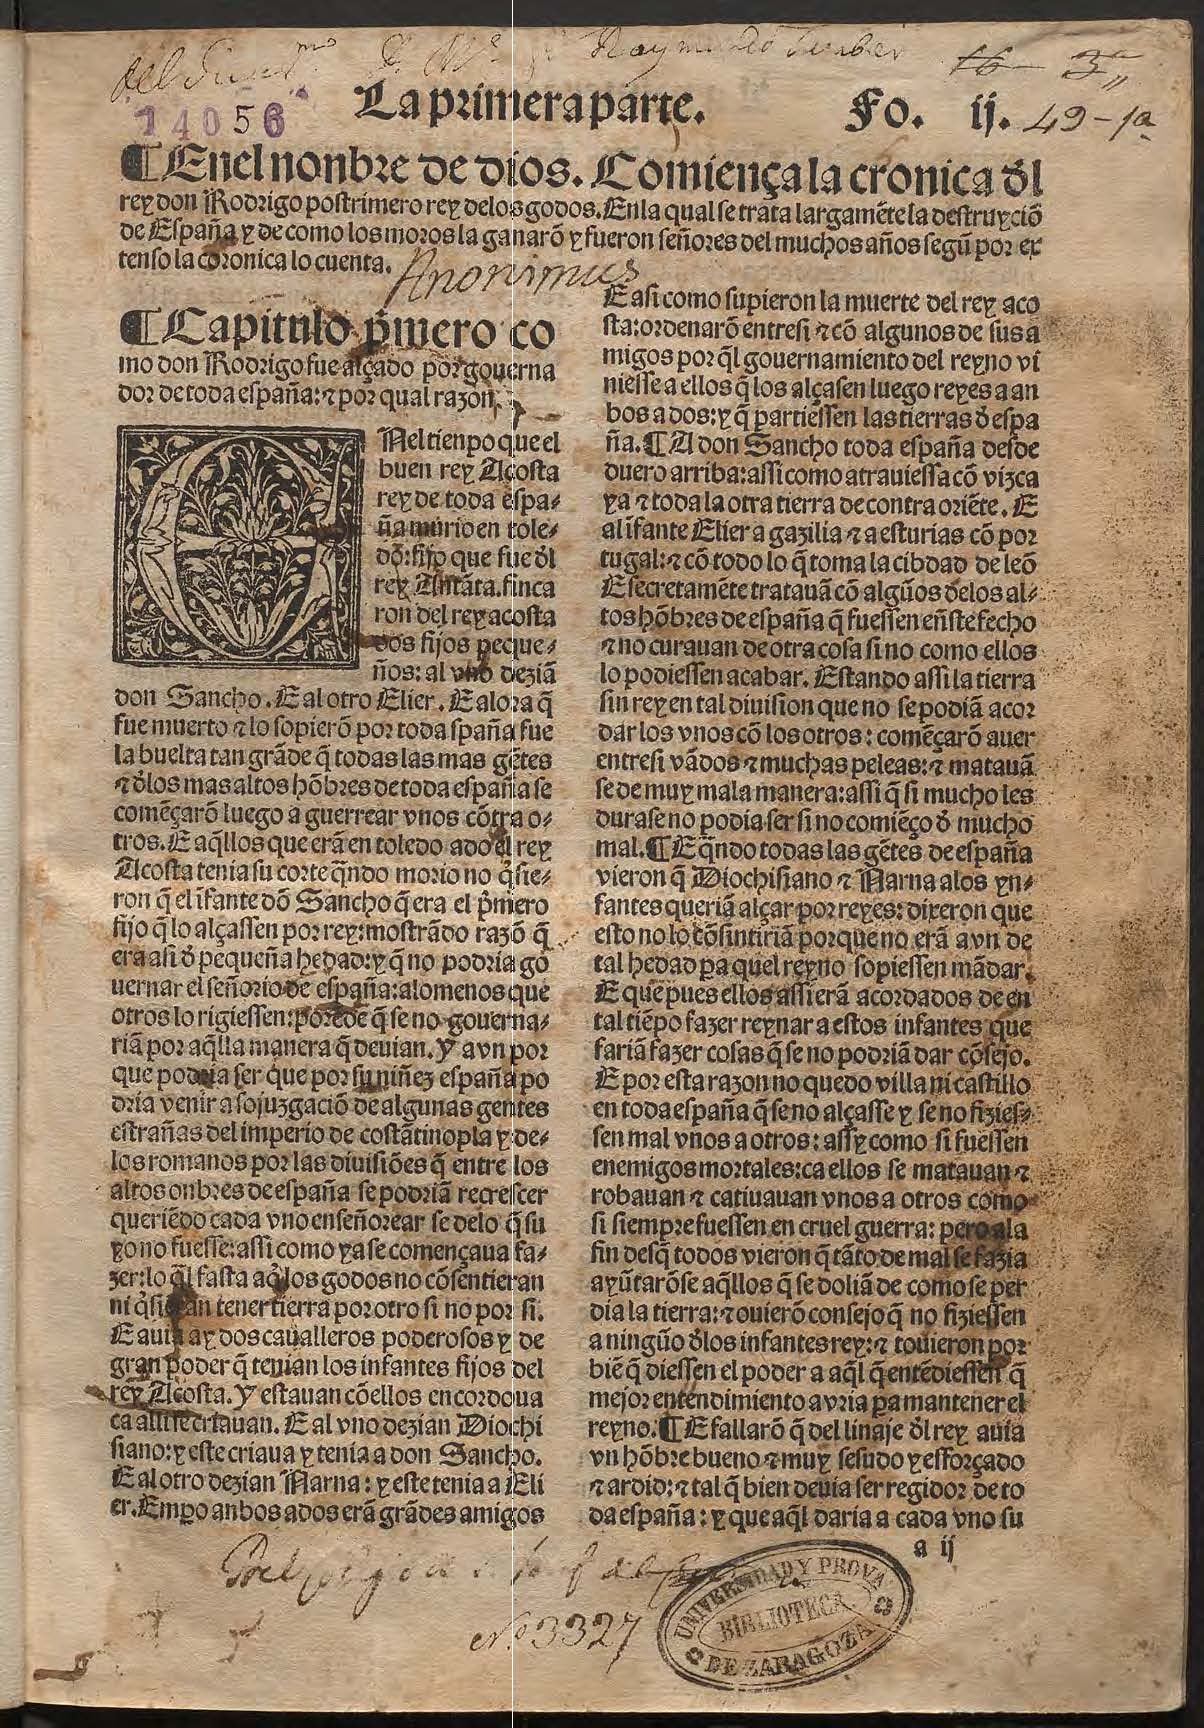 Raymundo
16 3ª
14056
La primera parte. Fo. ij. 49-1ª
¶ En el nonbre de dios. Comiença la cronica đl
rey don Rodrigo postrimero rey delos godos. En la qual se trata largamẽte la destruyciõ
de España y de como los moros la ganarõ y fueron señores del muchos años segũ por ex
tenso la coronica lo cuenta.
Anonimus
¶ Capitulo p̃mero co
mo don Rodrigo fue alçado por gouerna
dor de toda españa: ⁊ por qual razon.
Nel tienpo que el
buen rey Acosta
rey de toda espa-
ña murio en tole-
do: fijo que fue đl
rey Antãta. finca
ron del rey acosta
dos fijos peque-
ños: al vno deziã
don Sancho. E al otro Elier. E alora q̃
fue muerto ⁊ lo sopierõ por toda spaña fue
la buelta tan grãde q̃ todas las mas gẽtes
⁊ đlos mas altos hõbres de toda españa se
comẽçarõ luego a guerrear vnos cõtra o-
tros. E aq̃llos que erã en toledo ado el rey
Acosta tenia su corte q̃ndo morio no q̃sie-
ron q̃ el ĩfante dõ Sancho q̃ era el p̃mero
fijo q̃ lo alçassen por rey: mostrãdo razõ q̃
era asi đ pequeña hedad: y q̃ no podria go
uernar el señorio de españa: alomenos que
otros lo rigiessen: por ẽde q̃ se no gouerna-
riã por aq̃lla manera q̃ deuian. Y avn por
que podria ser que por su niñez españa po
dria venir a sojuzgaciõ de algunas gentes
estrañas del imperio de costãtinopla y de-
los romanos por las diuisiões q̃ entre los
altos onbres de españa se podriã recrescer
queriẽdo cada vno enseñorear se delo q̃ su
yo no fuesse: assi como ya se començaua fa-
zer: lo q̃l fasta aq̃ los godos no cõsentieran
ni q̃sieran tener tierra por otro si no por si.
E auia ay dos caualleros poderosos y de
gran poder q̃ tenian los infantes fijos del
rey Acosta. Y estauan cõellos en cordoua
ca alli se criauan. E al vno dezian Diochi
siano: y este criaua y tenia a don Sancho.
E al otro dezian Narna: y este tenia a Eli
er. Empo anbos ados erã grãdes amigos
E asi como supieron la muerte del rey aco
sta: ordenarõ entresi ⁊ cõ algunos de sus a
migos por q̃l gouernamiento del reyno vi
niesse a ellos q̃ los alçasen luego reyes a an
bos ados: y q̃ partiessen las tierras đ espa
ña. ¶ A don Sancho toda españa desde
duero arriba: assi como atrauiessa cõ vizca
ya ⁊ toda la otra tierra de contra oriẽte. E
al ĩfante Elier a gazilia ⁊ a esturias cõ por
tugal: ⁊ cõ todo lo q̃ toma la cibdad de leõ
E secretamẽte tratauã cõ algũos đelos al-
tos hõbres de españa q̃ fuessen eñste fecho
⁊ no curauan de otra cosa si no como ellos
lo podiessen acabar. Estando assi la tierra
sin rey en tal diuision que no se podiã acor
dar los vnos cõ los otros: comẽçarõ auer
entresi vãdos ⁊ muchas peleas: ⁊ matauã
se de muy mala manera: assi q̃ si mucho les
durase no podia ser si no comiẽço đ mucho
mal. ¶ E q̃ndo todas las gẽtes de españa
vieron q̃ Diochisiano ⁊ Narna alos yn-
fantes queriã alçar por reyes: dixeron que
esto no lo cõsintiriã porque no erã avn de
tal hedad pa quel reyno sopiessen mãdar.
E que pues ellos assi erã acordados de en
tal tiẽpo fazer reynar a estos infantes que
fariã fazer cosas q̃ se no podriã dar cõsejo.
E por esta razon no quedo villa ni castillo
en toda españa q̃ se no alçasse y se no fizies-
sen mal vnos a otros: assy como si fuessen
enemigos mortales: ca ellos se matauan ⁊
robauan ⁊ catiuauan vnos a otros como
si siempre fuessen en cruel guerra: pero ala
fin desq̃ todos vieron q̃ tãto de mal se fazia
ayũtarõse aq̃llos q̃ se doliã de como se per
dia la tierra: ⁊ ouierõ consejo q̃ no fiziessen
a ningũo đlos infantes rey: ⁊ touieron por
biẽ q̃ diessen el poder a aq̃l q̃ entẽdiessen q̃
mejor entendimiento avria pa mantener el
reyno. ¶ E fallarõ q̃ del linaje đl rey auia
vn hõbre bueno ⁊ muy sesudo y esforçado
⁊ ardid: ⁊ tal q̃ bien deuia ser regidor de to
da españa: y que aq̃l daria a cada vno su
a ij
Nº 3327
UNIVERSIDAD Y PROVA
BIBLIOTECA
DE ZARAGOZA